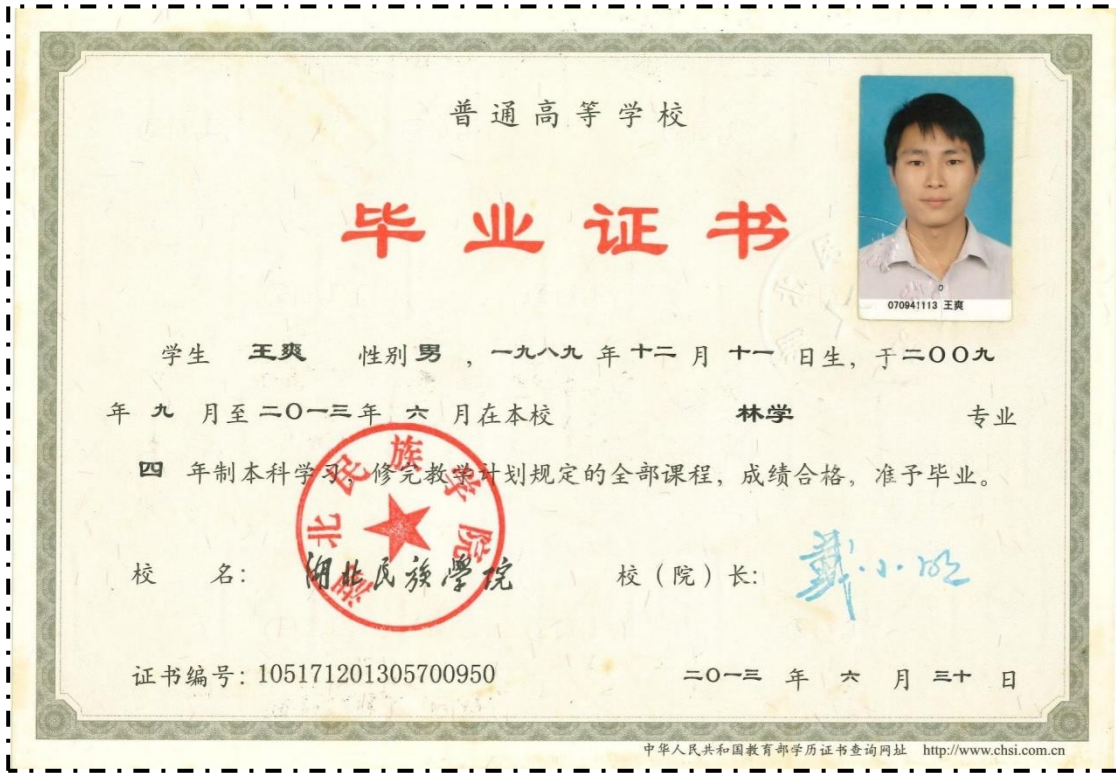 普通高等学校
毕业证书
070941113 王爽
学生 王爽 性别 男 ，一九八九 年 十二 月 十一 日生，于二〇〇九
年 九 月至 二〇一三 年 六 月在本校 林学 专业
四 年制本科学习，修完教学计划规定的全部课程，成绩合格，准予毕业。
校 名： 湖北民族學院 校（院）长： 戴小明
湖北民族学院
证书编号：105171201305700950 二〇一三 年 六 月 三十 日
中华人民共和国教育部学历证书查询网址 http://www.chsi.com.cn